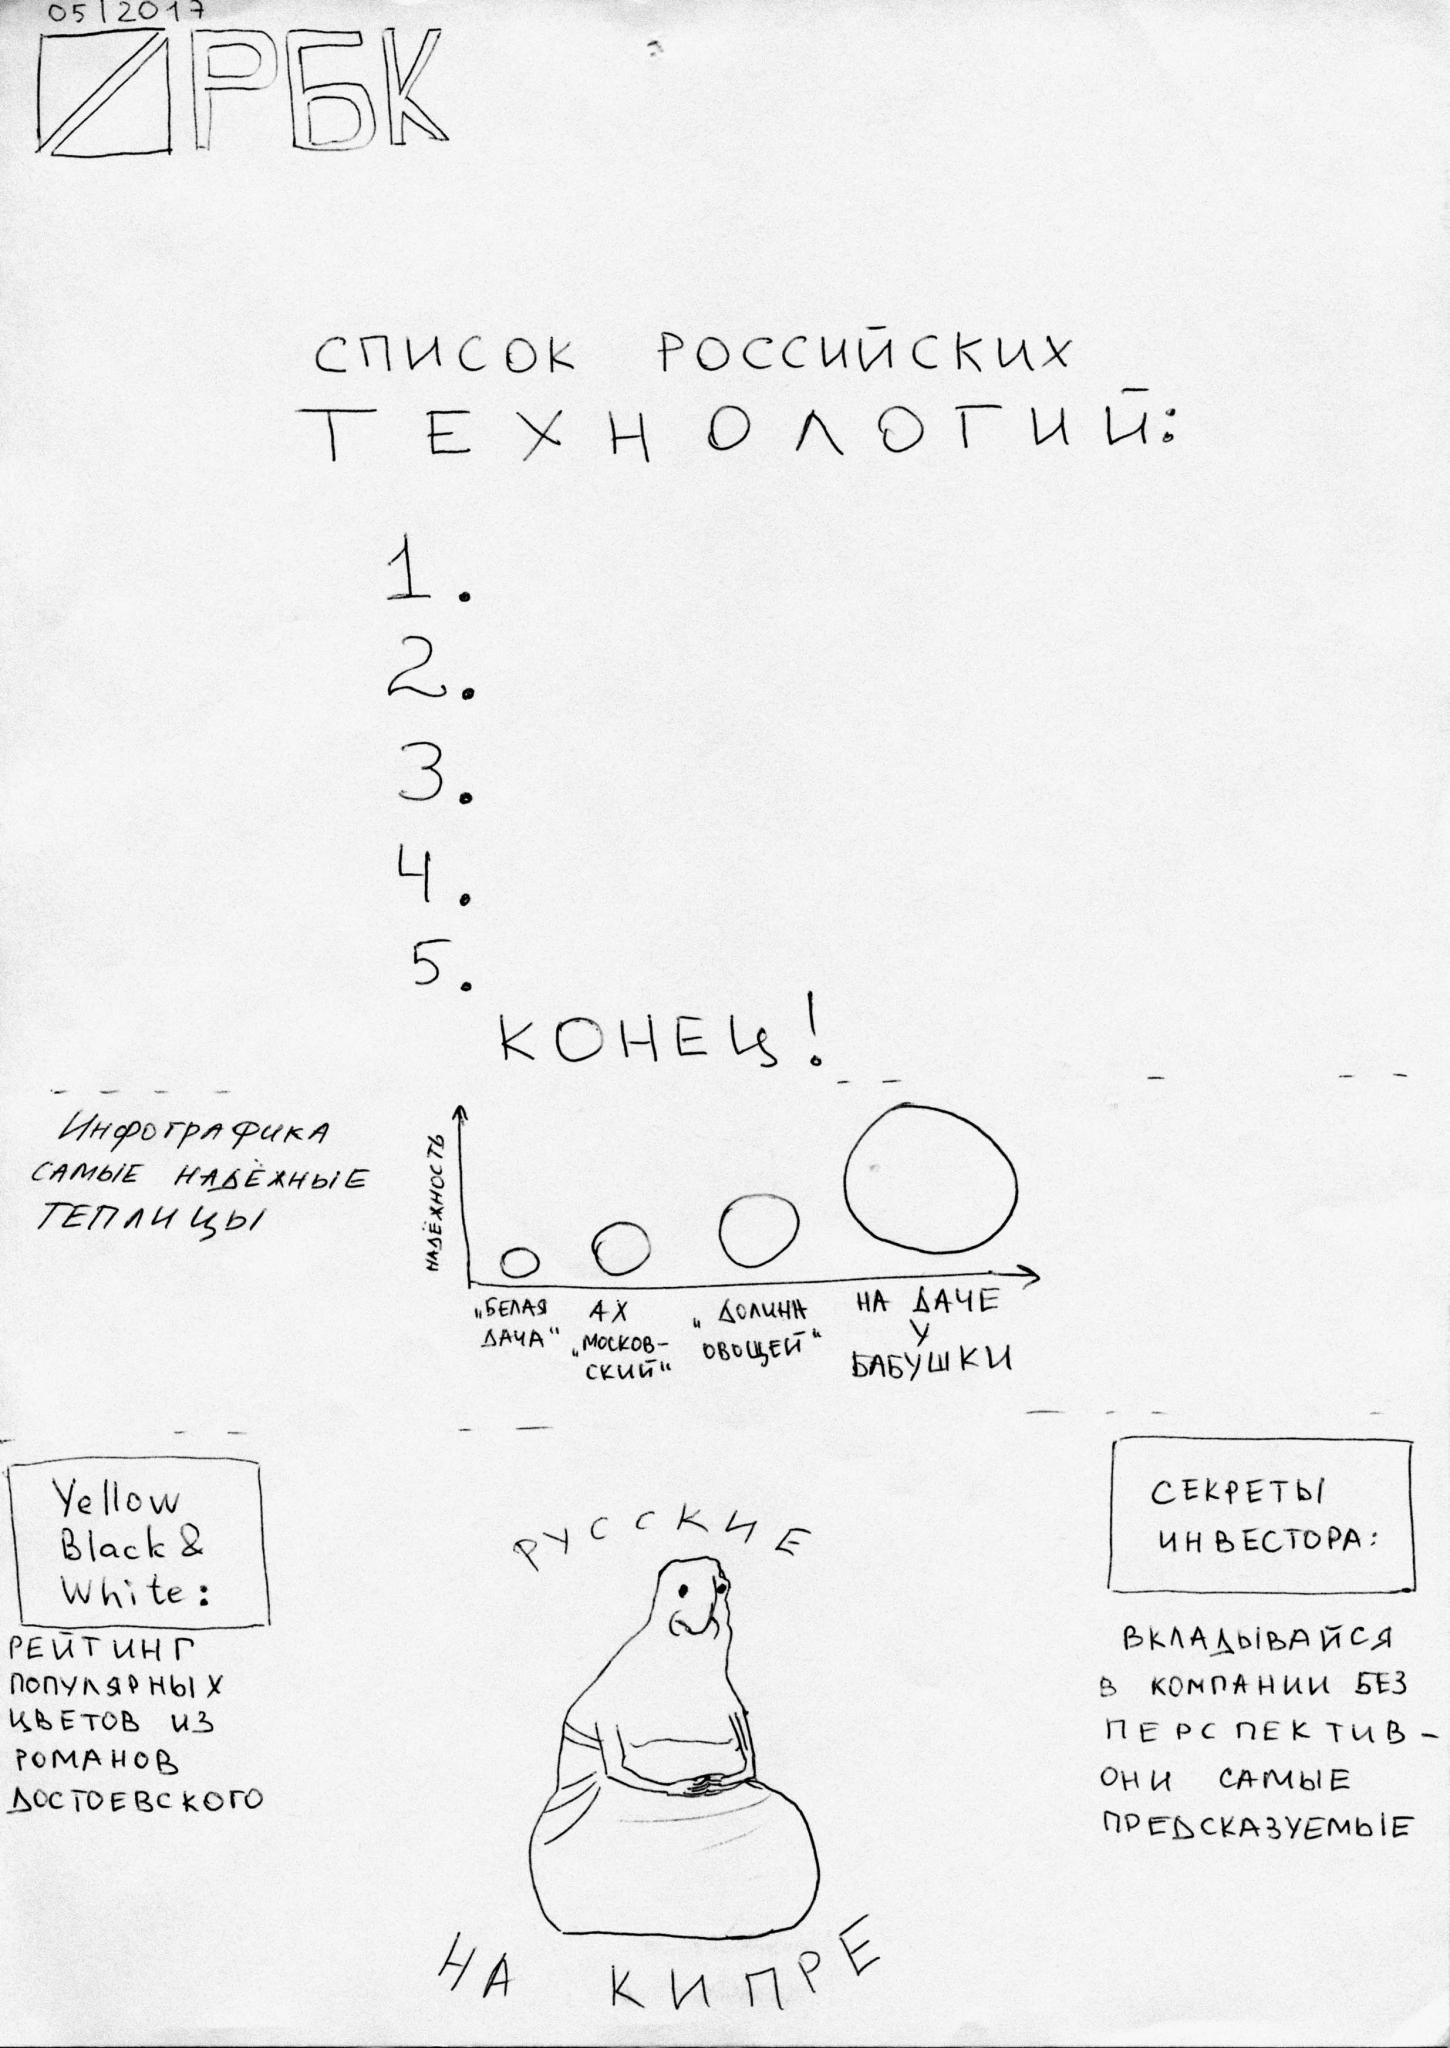 05/2017
РБК
СПИСОК РОССИЙСКИХ
ТЕХНОЛОГИЙ:
1.
2.
3.
4.
5.
КОНЕЦ!
ИНФОГРАФИКА
САМЫЕ НАДЁЖНЫЕ
ТЕПЛИЦЫ
НАДЁЖНОСТЬ
„БЕЛАЯ
ДАЧА“
АХ
„МОСКОВ-
СКИЙ“
„ДОЛИНА
ОВОЩЕЙ“
НА ДАЧЕ
У
БАБУШКИ
Yellow
Black &
White:
РЕЙТИНГ
ПОПУЛЯРНЫХ
ЦВЕТОВ ИЗ
РОМАНОВ
ДОСТОЕВСКОГО
РУССКИЕ
НА КИПРЕ
СЕКРЕТЫ
ИНВЕСТОРА:
ВКЛАДЫВАЙСЯ
В КОМПАНИИ БЕЗ
ПЕРСПЕКТИВ-
ОНИ САМЫЕ
ПРЕДСКАЗУЕМЫЕ